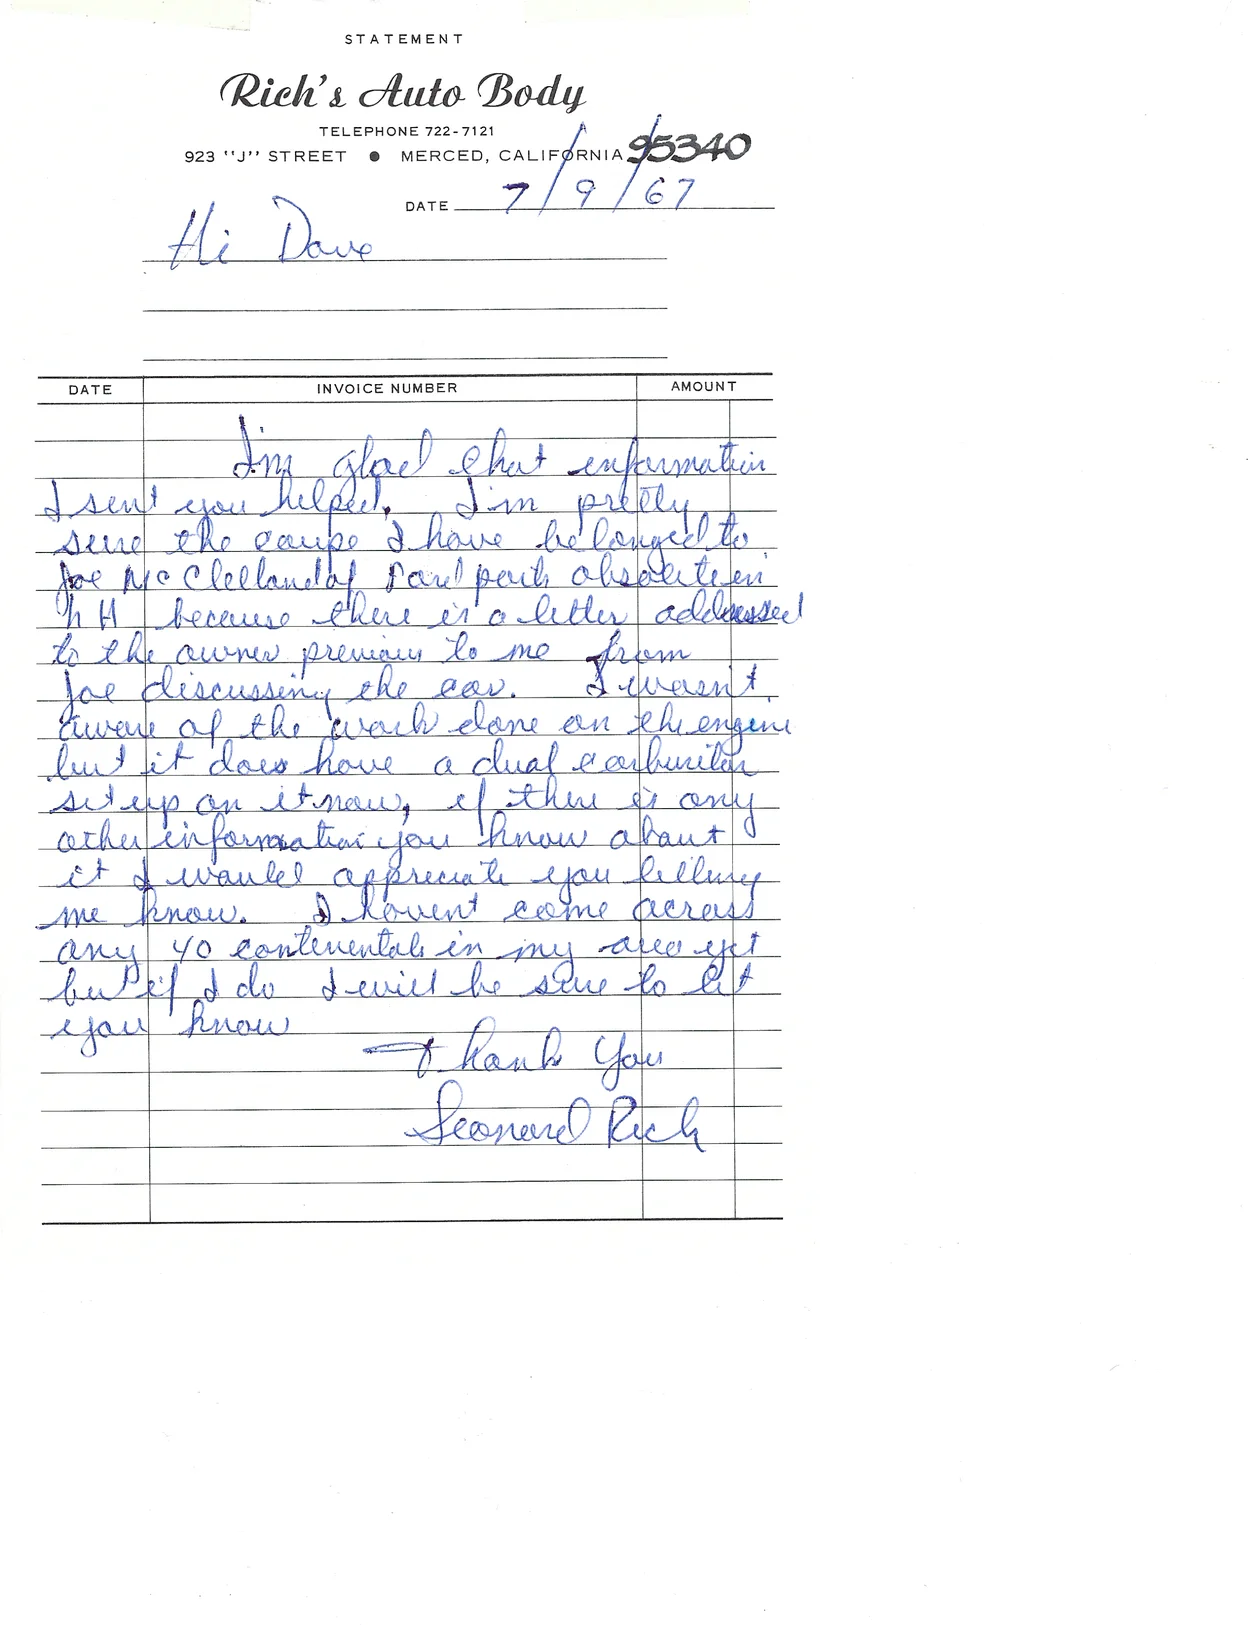 STATEMENT
Rich's Auto Body
TELEPHONE 722-7121
923 "J" STREET ● MERCED, CALIFORNIA 95340
DATE 7/9/67
Hi Dave
DATE INVOICE NUMBER AMOUNT
I'm glad that information
I sent you helped. I'm pretty
sure the coupe I have belonged to
Joe McClelland of Ford parts obsolete in
because there is a letter addressed
to the owner previous to me from
Joe discussing the car. I wasn't
aware of the work done on the engine
but it does have a dual carburitor
set up on it now, if there is any
other information you know about
it I would appreciate you telling
me know. I havent come across
any 40 continentals in my area yet
but if I do I will be sure to let
you know
Thank You
Leonard Rich